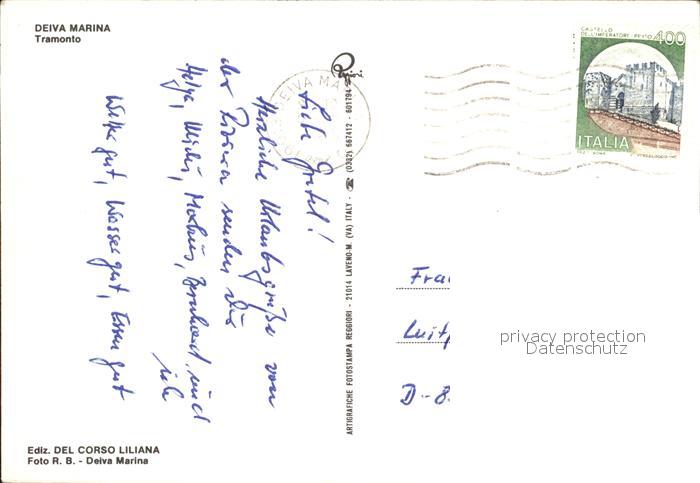 DEIVA MARINA
Tramonto
Liebe Gretel!
Herzliche Urlaubsgrüße von
der Riviera senden Dir
Helga, Michi, Markus, Bernhard und
ich
Wetter gut, Wasser gut, Essen gut
Ediz. DEL CORSO LILIANA
Foto R. B. - Deiva Marina
ARTIGRAFICHE FOTOSTAMPA REGGIORI - 21014 LAVENO-M. (VA) ITALY - ☎ (0332) 667412 - 601794
DEIVA MA
CASTELLO
DELL'IMPERATORE-PRATO
400
ITALIA
Frau
Luitp
D-8
privacy protection
Datenschutz